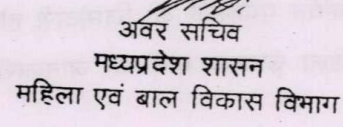 अवर सचिव
मध्यप्रदेश शासन
महिला एवं बाल विकास विभाग